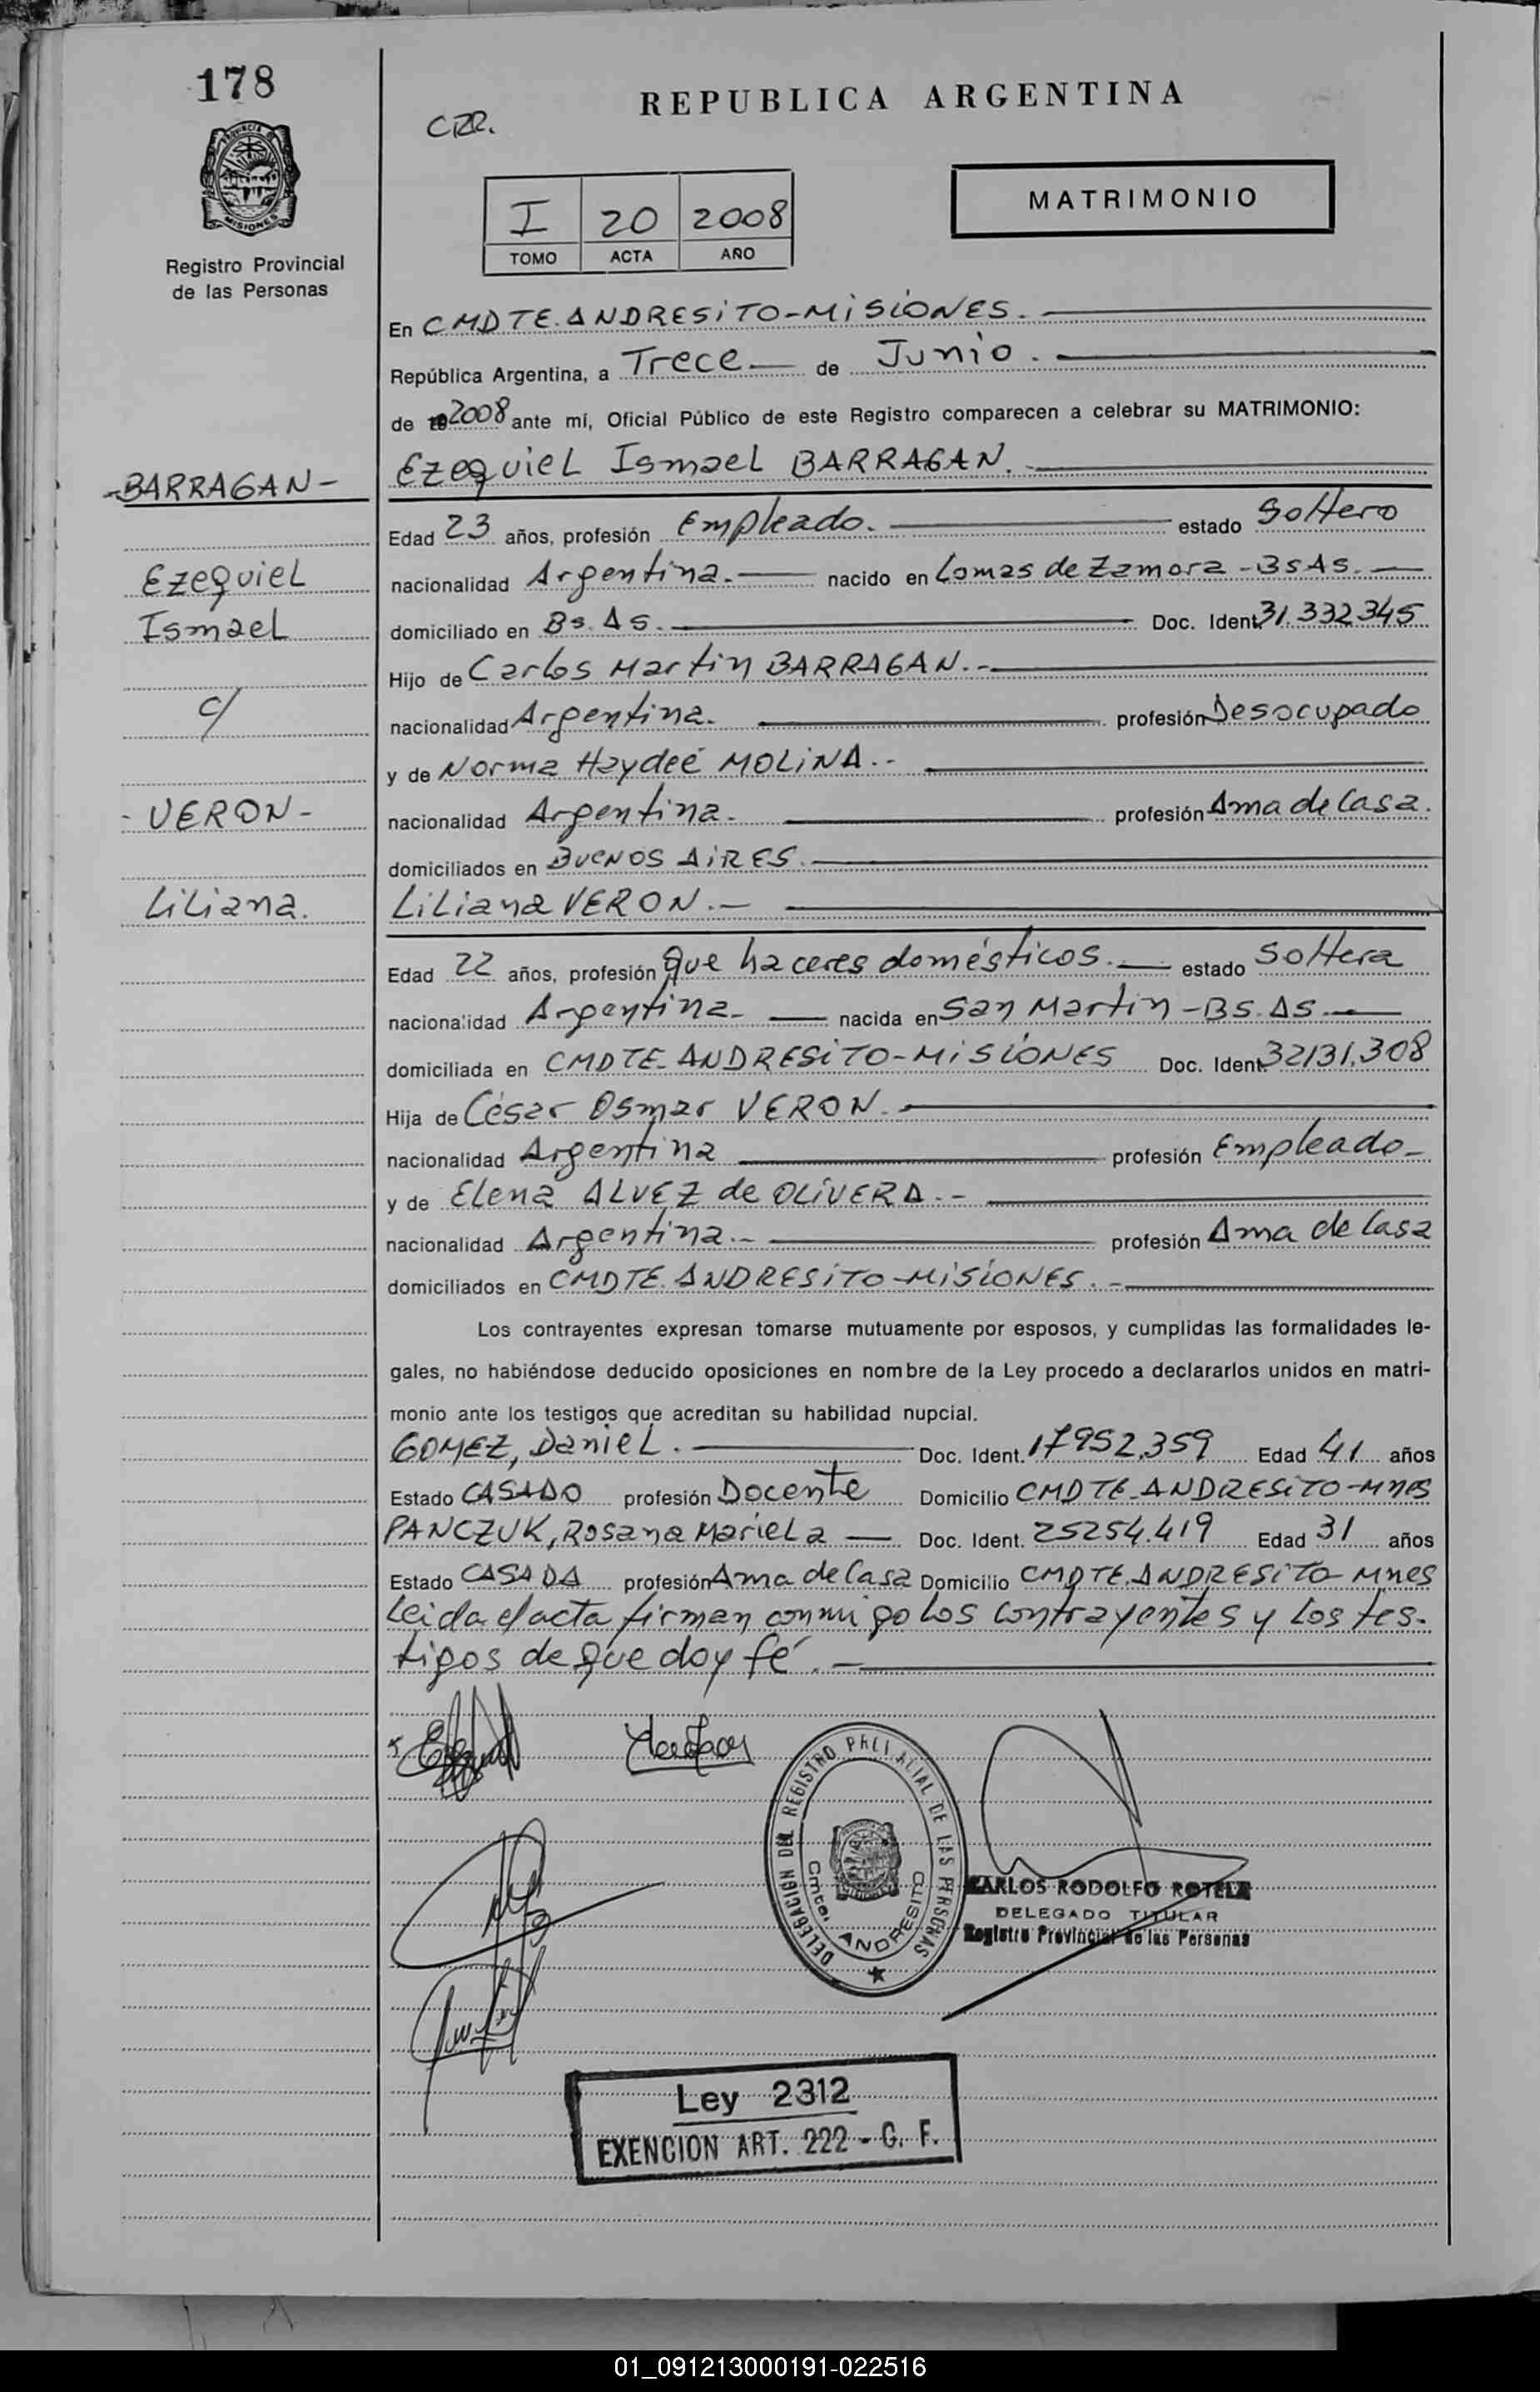 178
REPUBLICA ARGENTINA
CRR.
MATRIMONIO
I 20 2008
TOMO ACTA AÑO
PROVINCIA DE MISIONES
Registro Provincial
de las Personas
En CMDTE. ANDRESiTO-MiSiONES.
República Argentina, a Trece de Junio.
de 2008 ante mí, Oficial Público de este Registro comparecen a celebrar su MATRIMONIO:
Ezequiel Ismael BARRAGAN.
-BARRAGAN-
Edad 23 años, profesión Empleado. estado Soltero
Ezequiel
nacionalidad Argentina. nacido en Lomas de Zamora - BsAs.
Ismael
domiciliado en Bs. As. Doc. Ident. 31.332.345
Hijo de Carlos Martin BARRAGAN.-
c/
nacionalidad Argentina. profesión Desocupado
y de Norma Haydeé MOLiNA.-
-VERON-
nacionalidad Argentina. profesión Ama de Casa.
domiciliados en BUENOS AiRES.
Liliana.
Liliana VERON.-
Edad 22 años, profesión que haceres domésticos. estado Soltera
nacionalidad Argentina- nacida en San Martin - BS. AS.
domiciliada en CMDTE- ANDRESiTO-MiSiONES Doc. Ident. 32131.308
Hija de César Osmar VERON.
nacionalidad Argentina profesión Empleado-
y de Elena ALVEZ de OLiVERA.-
nacionalidad Argentina.- profesión Ama de Casa
domiciliados en CMDTE. ANDRESiTO-MiSiONES.-
Los contrayentes expresan tomarse mutuamente por esposos, y cumplidas las formalidades le-
gales, no habiéndose deducido oposiciones en nombre de la Ley procedo a declararlos unidos en matri-
monio ante los testigos que acreditan su habilidad nupcial.
GOMEZ, Daniel. Doc. Ident. 17952.359 Edad 41 años
Estado CASADO profesión Docente Domicilio CMDTE-ANDRESiTO-Mnes
PANCZUK, Rosana Mariela — Doc. Ident. 25254.419 Edad 31 años
Estado CASADA profesión Ama de Casa Domicilio CMDTE. ANDRESiTO-Mnes
Leida el acta firman conmigo los contrayentes y los tes-
tigos de que doy fé.-
DELEGACION DEL REGISTRO PROVINCIAL DE LAS PERSONAS
Cmte. ANDRESITO
CARLOS RODOLFO ROTELA
DELEGADO TITULAR
Registro Provincial de las Personas
Ley 2312
EXENCION ART. 222 - C. F.
01_091213000191-022516